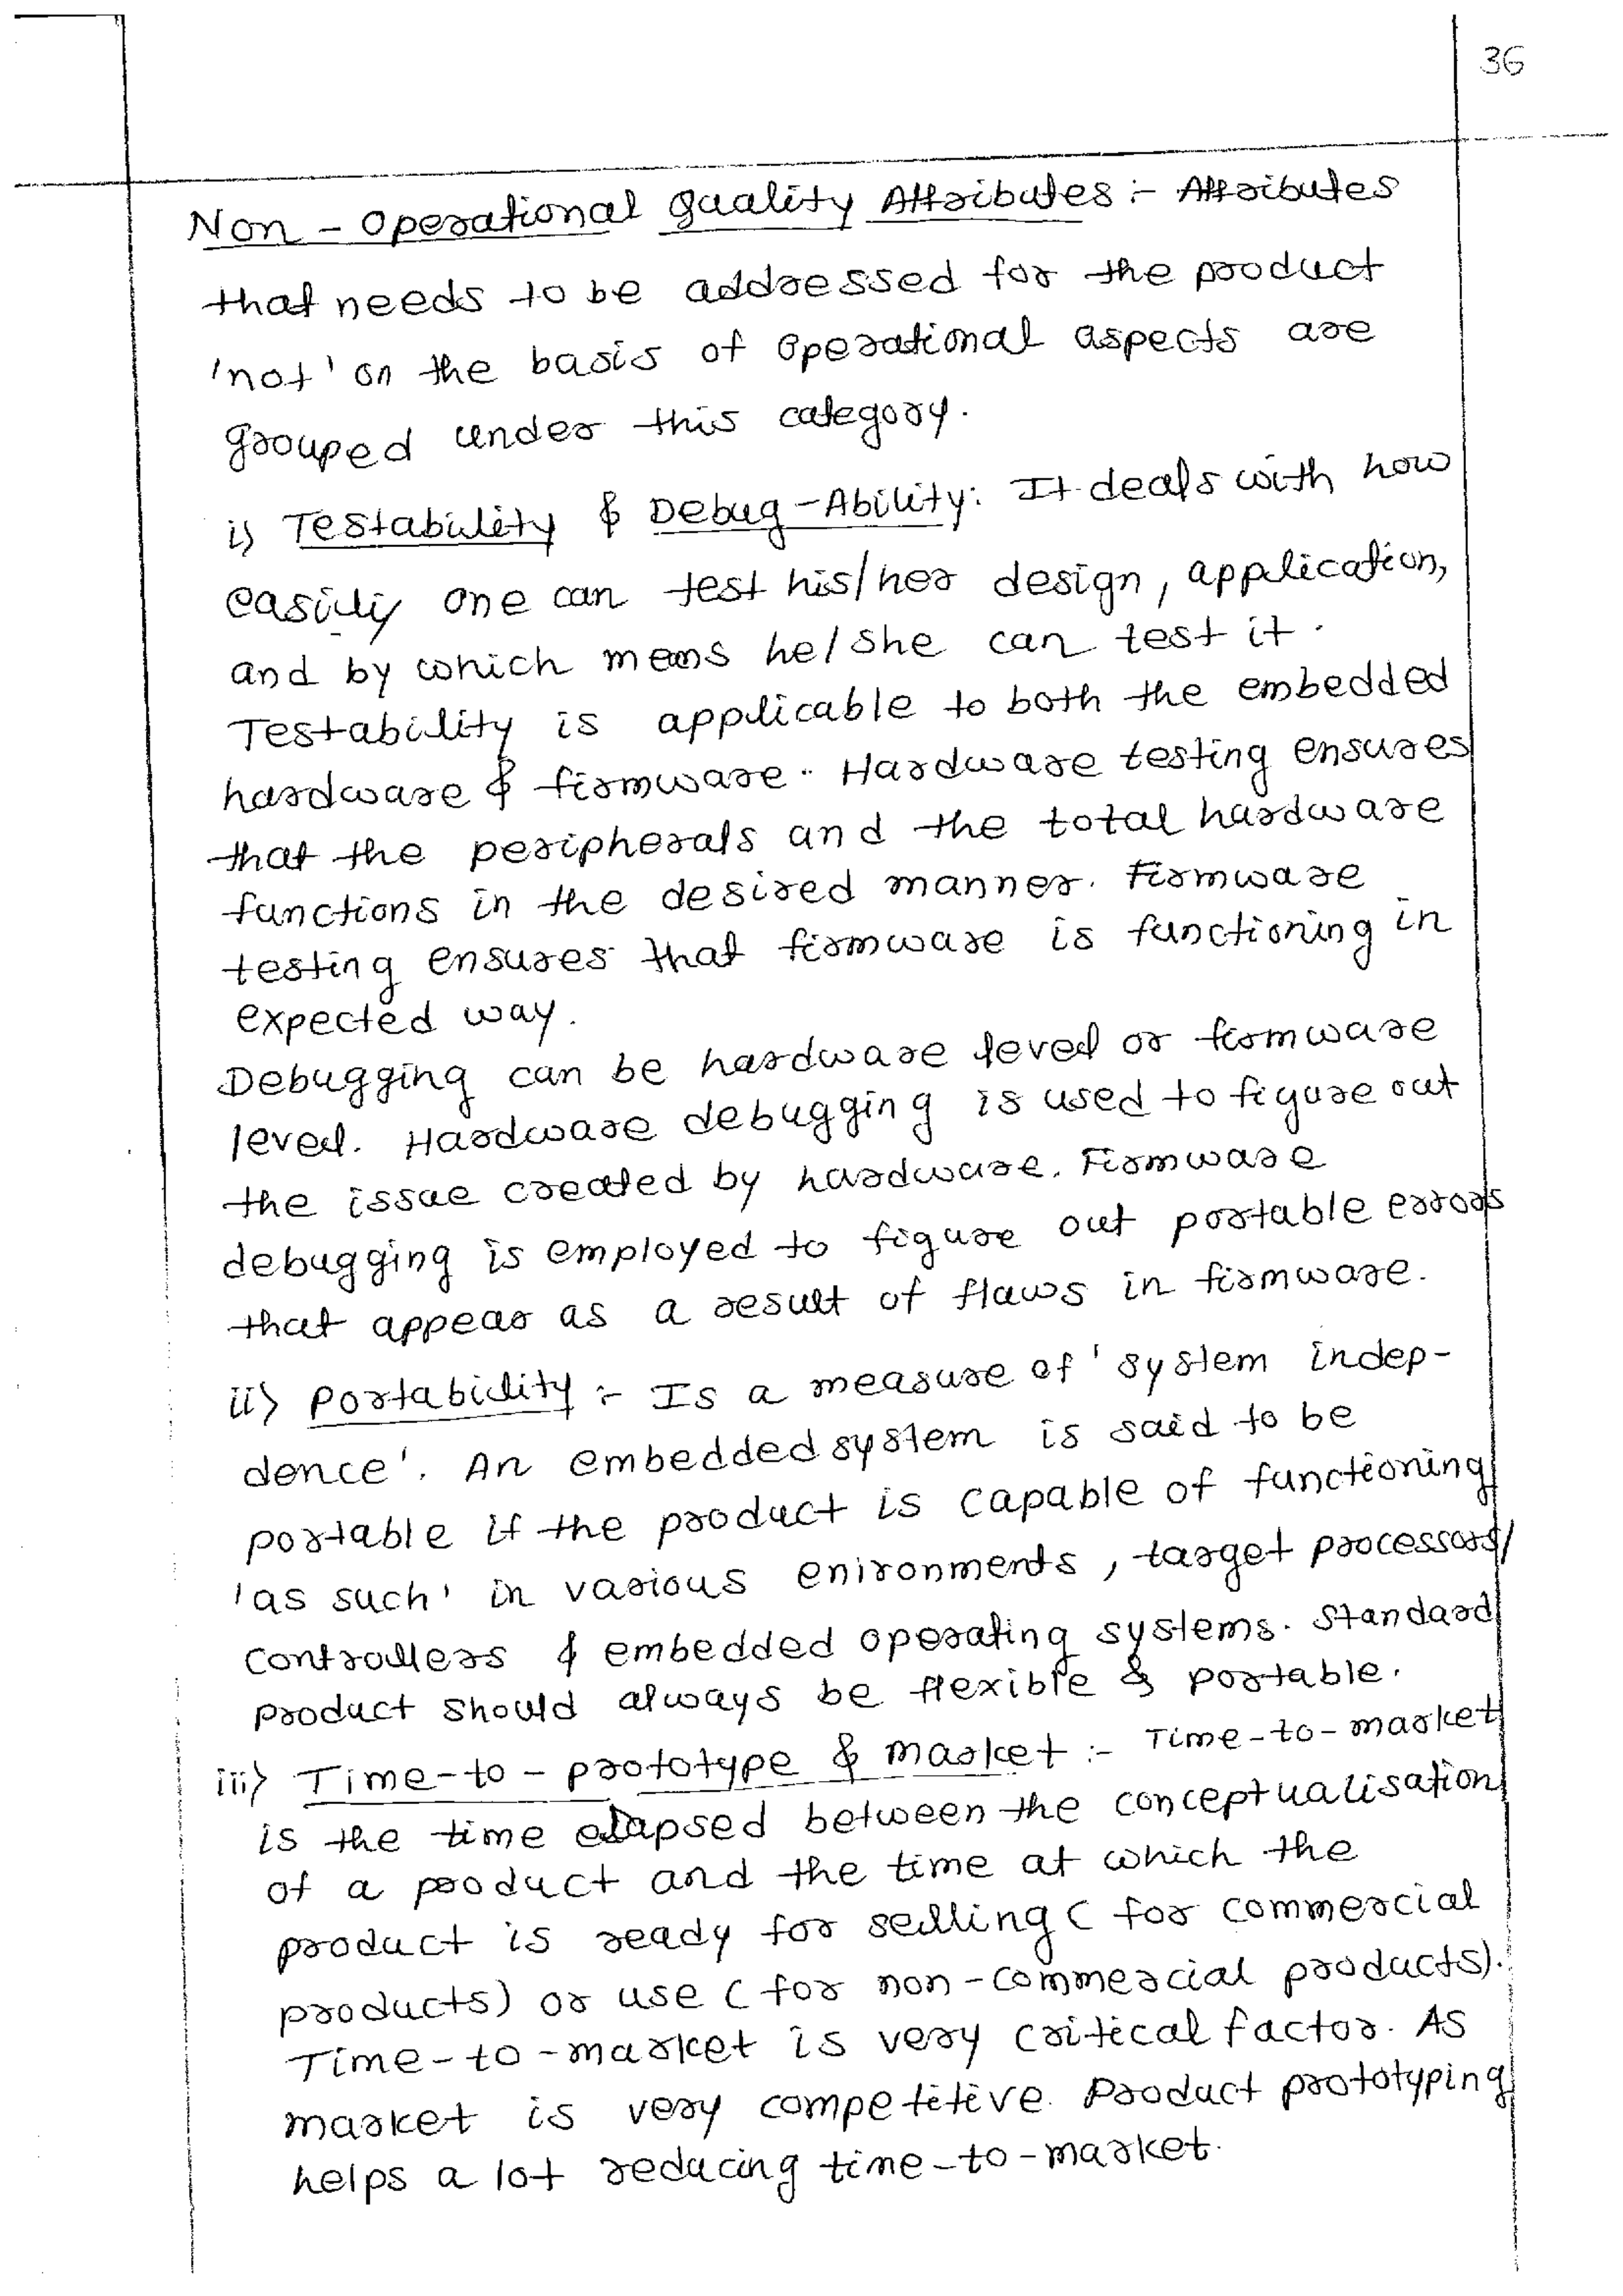 36
Non - Operational Quality Attributes :- Attributes
that needs to be addressed for the product
'not' on the basis of operational aspects are
grouped under this category.
i) Testability & Debug-Ability: It deals with how
easily one can test his/her design, application,
and by which means he/she can test it.
Testability is applicable to both the embedded
hardware & firmware. Hardware testing ensures
that the peripherals and the total hardware
functions in the desired manner. Firmware
testing ensures that firmware is functioning in
expected way.
Debugging can be hardware level or firmware
level. Hardware debugging is used to figure out
the issue created by hardware. Firmware
debugging is employed to figure out portable errors
that appear as a result of flaws in firmware.
ii) Portability :- Is a measure of 'system indep-
dence'. An embedded system is said to be
portable if the product is capable of functioning
'as such' in various enironments, target processors/
controllers & embedded operating systems. Standard
product should always be flexible & portable.
iii) Time-to-prototype & market :- Time-to-market
is the time elapsed between the conceptualisation
of a product and the time at which the
product is ready for selling (for commercial
products) or use (for non-commercial products).
Time-to-market is very critical factor. As
market is very competitive. Product prototyping
helps a lot reducing time-to-market.